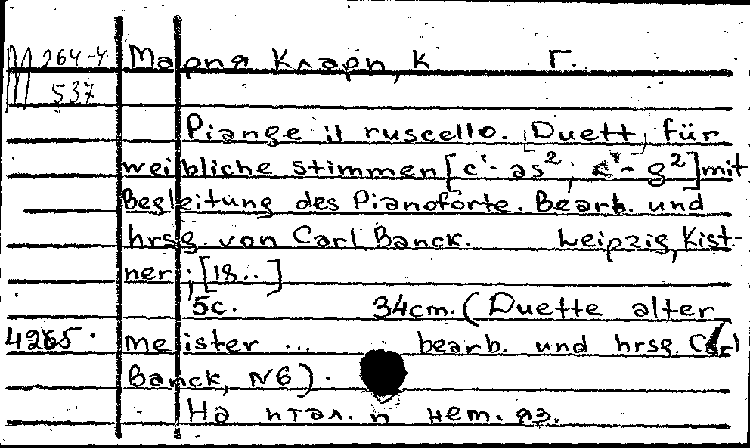 М 264-4
537
Мария Клари, К Г.
Piange il ruscello. [Duett] für
weibliche Stimmen [c¹-as²; c¹-g²] mit
Begleitung des Pianoforte. Bearb. und
hrsg. von Carl Banck. Leipzig, Kist-
ner, [18..]
5c. 34cm. (Duette alter
4265. meister ... bearb. und hrsg. Carl
Banck, N6).
На итал. и нем. яз.